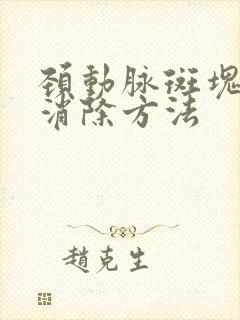 頚動脉斑塊
消除方法
趙克生